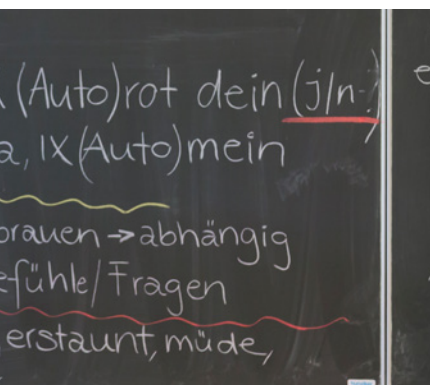 (Auto)rot dein (j/n)
a, IX(Auto)mein
brauen → abhängig
efühle/Fragen
erstaunt, müde,
e